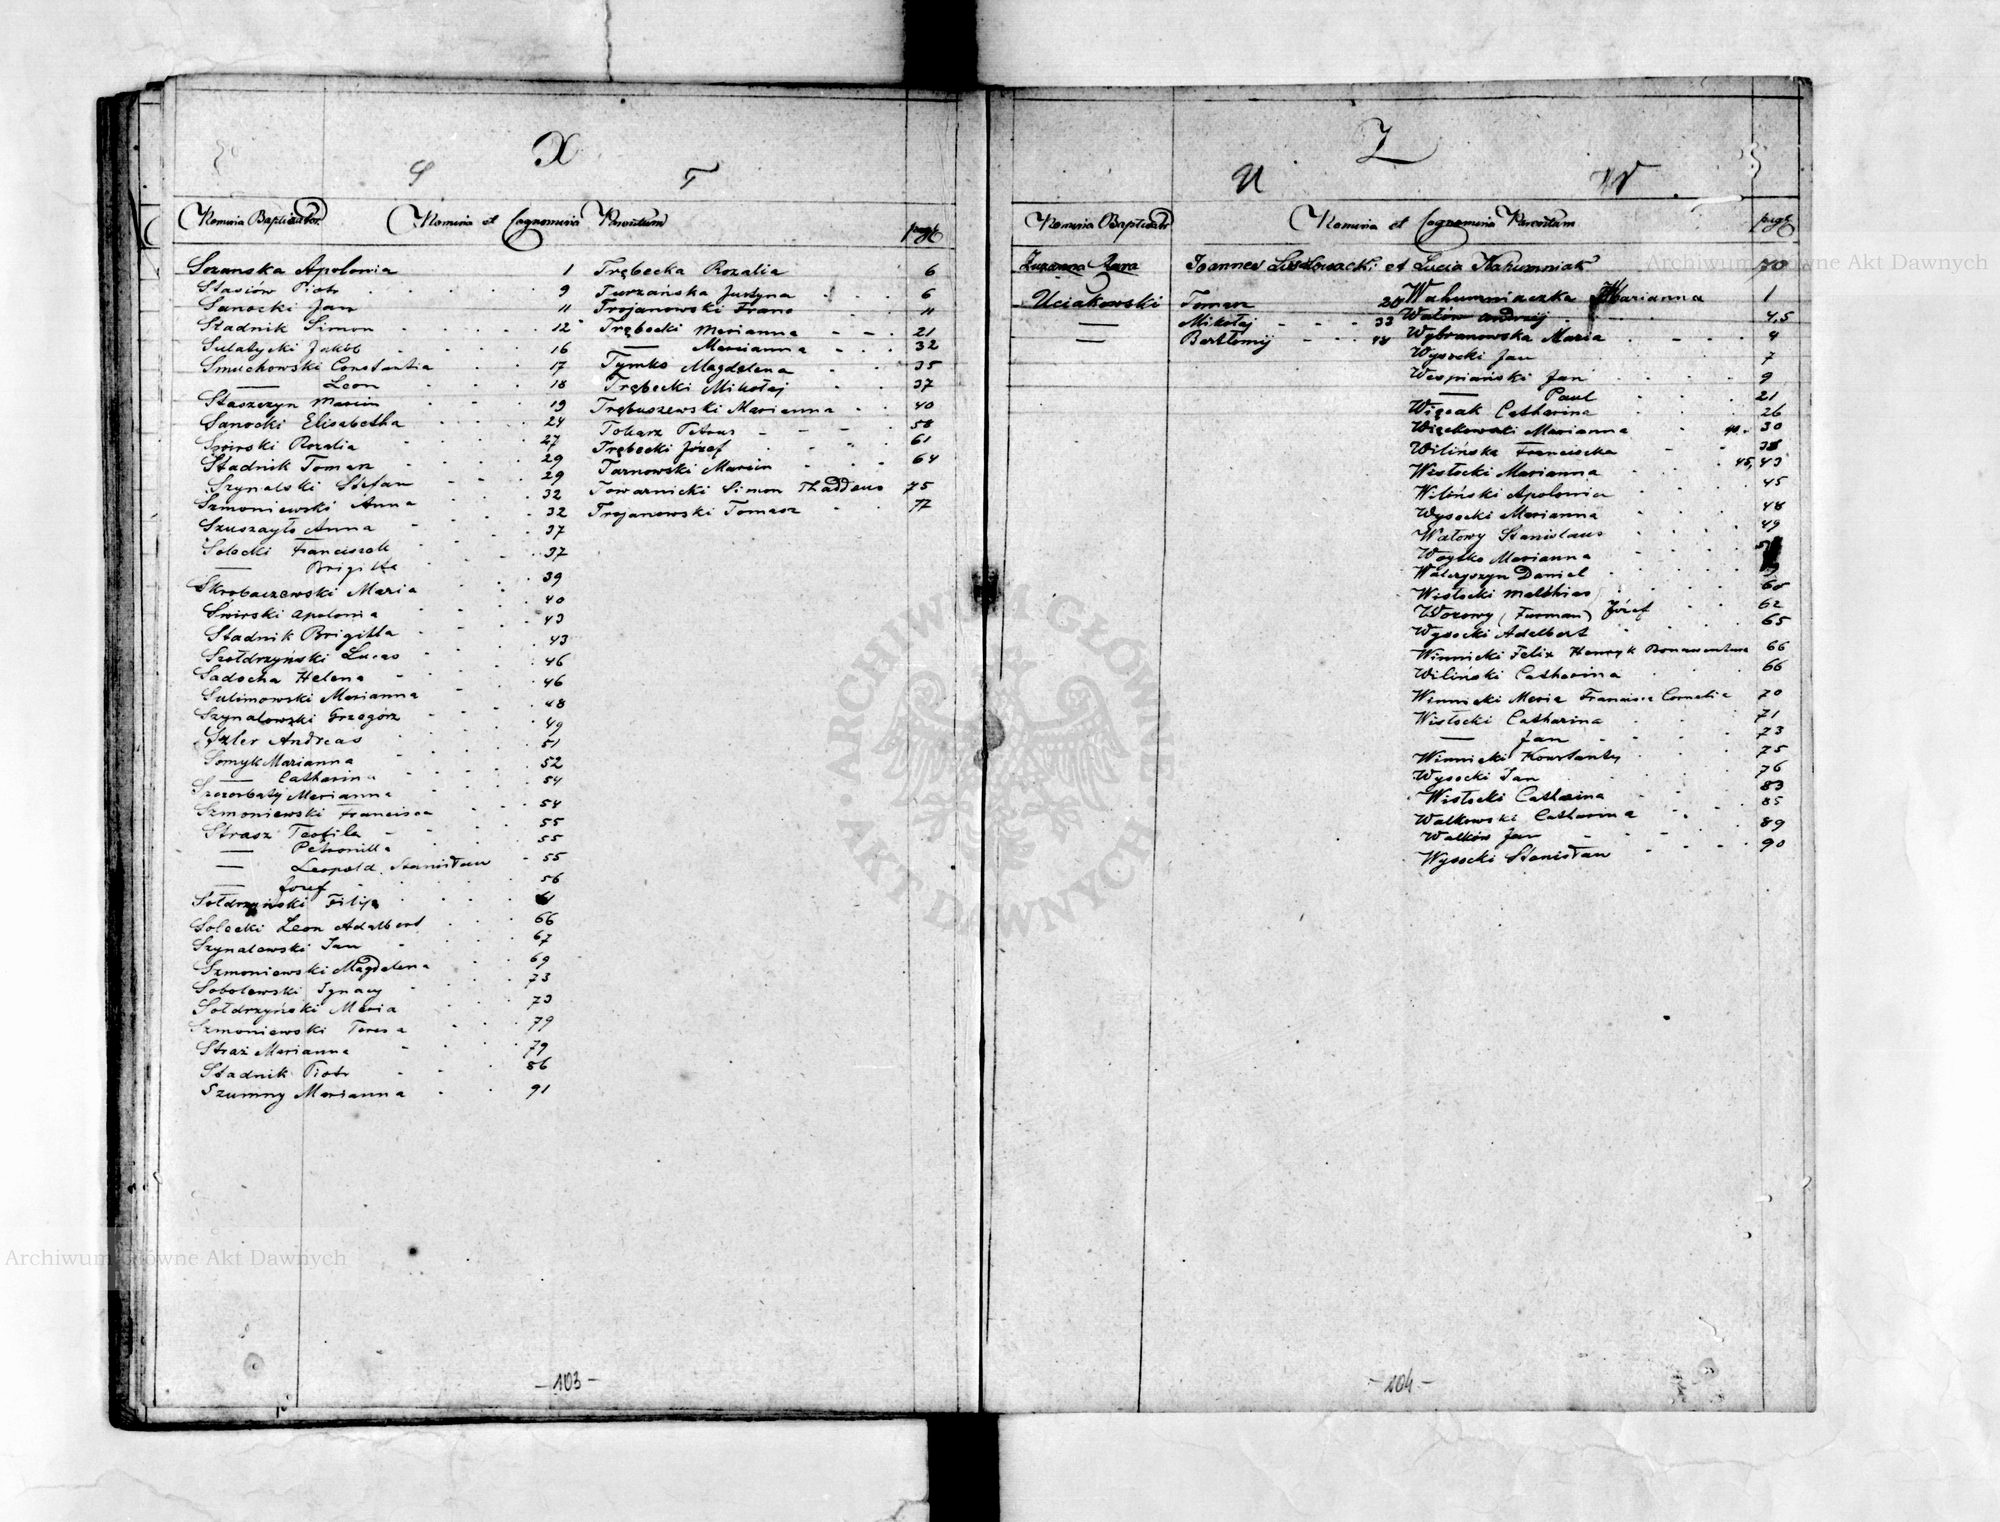 X
S
T
Nomina Baptizator.
Nomina et Cognomina Parentum
pag
Sozanska Apolonia 1
Stasiów Piotr 9
Sanocki Jan 11
Stadnik Simon 12
Sulatycki Jakób 16
Smuchowski Constantia 17
— Leon 18
Staszczyn Marcin 19
Sanocki Elisabetha 24
Swirski Rozalia 27
Stadnik Tomasz 29
Szynalski Stefan 29
Szmoniewski Anna 32
Szuszayło Anna 32
Solecki Franciszek 37
— Brigitta 37
Skrobaczewski Maria 39
Swirski Apolonia 40
Stadnik Brigitta 43
Szołdrzyński Lucas 43
Sadocha Helena 46
Sulimowski Marianna 46
Szynalowski Grzegórz 48
Szler Andreas 49
Somyk Marianna 51
— Catharina 52
Szczorbaty Marianna 54
Szmoniewski Francisca 54
Strasz Teofila 55
— Petronilla 55
— Leopold Stanisław 55
— Jozef 56
Sołdrzyński Filip 61
Solecki Leon Adalbert 66
Szynalewski Jan 67
Szmoniewski Magdelena 69
Sobolewski Ignacy 73
Sołdrzyński Maria 73
Szmoniewski Teresa 79
Straz Marianna 79
Stadnik Piotr 86
Szumny Marianna 91
Trębecka Rozalia 6
Turzańska Justyna 6
Trojanowski Franc 11
Trębecki Marianna 21
— Marianna 32
Tymko Magdelena 35
Trębecki Mikołaj 37
Trębuszewski Marianna 40
Tokarz Petrus 58
Trębecki Józef 61
Tarnowski Marcin 64
Towarnicki Simon Thaddeus 75
Trojanowski Tomasz 77
–103–
Z
U
W
Nomina Baptizator
Nomina et Cognomina Parentum
pag
Zuzanna Joannes et Lucia 70
Uciakowski Tomasz 20
— Mikołaj 33
— Bartłomiej
Marianna 1
Watów Andrzej 4,5
Wybranowska Maria 4
Wysocki Jan 7
Wespiański Jan 9
— Paul 21
Więcak Catharina 26
Więckowski Marianna 30
Wilińska Franciscka 38
Wisłocki Marianna 45, 43
Wiliński Apolonia 45
Wysocki Marianna 48
Watowy Stanislaus 49
Woytko Marianna
Waleryszyn Daniel
Wisłocki Mathias 60
Wozowy (Furman) Józef 62
Wysocki Adalbert 65
Winnicki Felix Henryk Bonawentura 66
Wiliński Catharina 66
Winnicki Maria Francisca Cornelia 70
Wisłocki Catharina 71
— Jan 73
Winnicki Konstanty 75
Wysocki Jan 76
Wisłocki Catharina 83
Walkowski Catharina 85
Walków Jan 89
Wysocki Stanisław 90
–104–
ARCHIWUM GŁÓWNE
AKT DAWNYCH
Archiwum Główne Akt Dawnych
Archiwum Główne Akt Dawnych